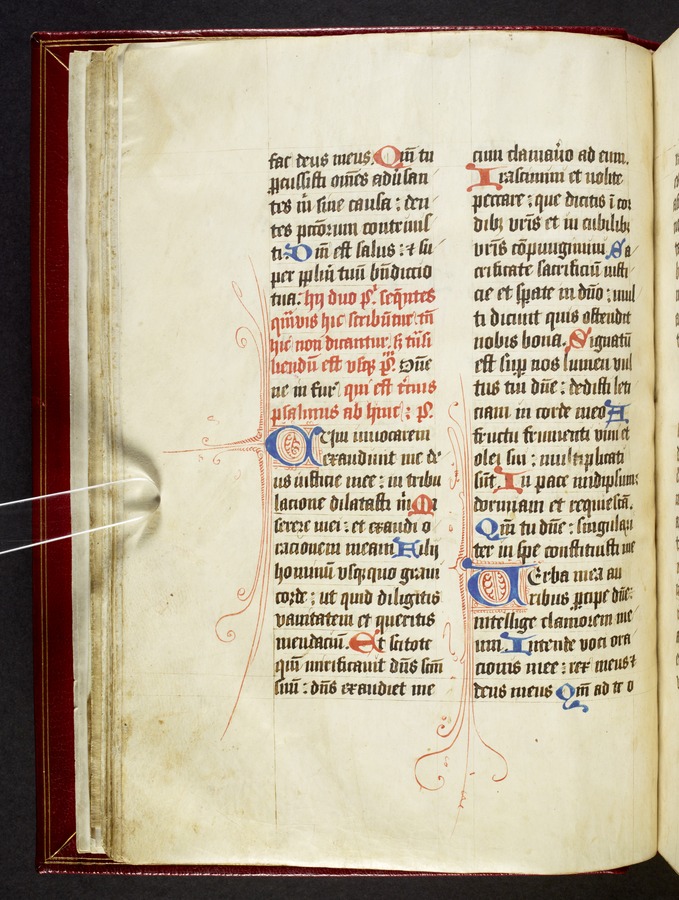 fac deus meus. Qm̄ tu
ꝑcussisti om̄es adūsan
tes m̄ sine causa : den
tes pctōrum contriuis
ti. Dn̄i est salus : ⁊ su
per ppl̄m tuū bn̄dictio
tua : hij duo ps̄. seq̄ntes
qm̄vis hic scribūtur tn̄
hic non dicantur. s̄ tūsi
liendū est vsq̄ ps̄. Dn̄e
ne in fur qui est t̄cius
psalmus ab hinc : ps̄.
Cum inuocarem
exaudiuit me de
us iusticie mee : in tribu
lacione dilatasti m̄. Mi
serere mei : et exaudi o
racionem meam. Filij
hominū vsq̄quo graui
corde : ut quid diligitis
vanitatem et queritis
mendaciū. Et scitote
qm̄ mirificauit dn̄s sc̄m
suū : dn̄s exaudiet me
cum clamaūo ad eum.
Irascimini et nolite
peccare : que dicitis ī cor
dibꝫ vr̄is et in cubilibꝫ
vr̄is cōpungimini. Sa
crificate sacrificiū iusti
cie et sꝑate in dn̄o : mul
ti dicunt quis ostendit
nobis bona. Signatū
est suꝑ nos lumen vul
tus tui dn̄e : dedisti leti
ciam in corde meo. A
fructu frumenti vini et
olei sui : multiplicati
sūt. In pace in idipsum :
dormiam et requiescā.
Qm̄ tu dn̄e : singulari
ter in spe constituisti me
Uerba mea au
ribus ꝑcipe dn̄e :
intellige clamorem me
um. Intende voci ora
cionis mee : rex meus ⁊
deus meus. Qm̄ ad te o